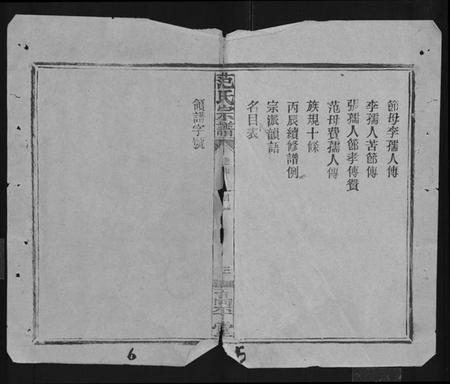 節母李孺人傳
李孺人苦節傳
張孺人節孝傳贊
范母費孺人傳
族規十條
丙辰續修譜例
宗派韻語
名目表
范氏宗譜
三
堂
領譜字號
5
6